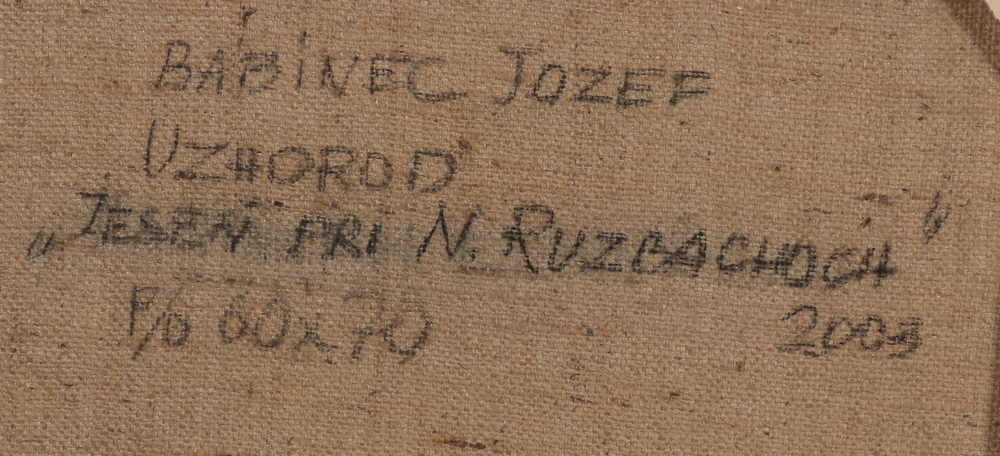 BABINEC JOZEF
UZHOROD
„JESEŇ PRI N. RUZBACHOCH“
P/6 60x70 2003